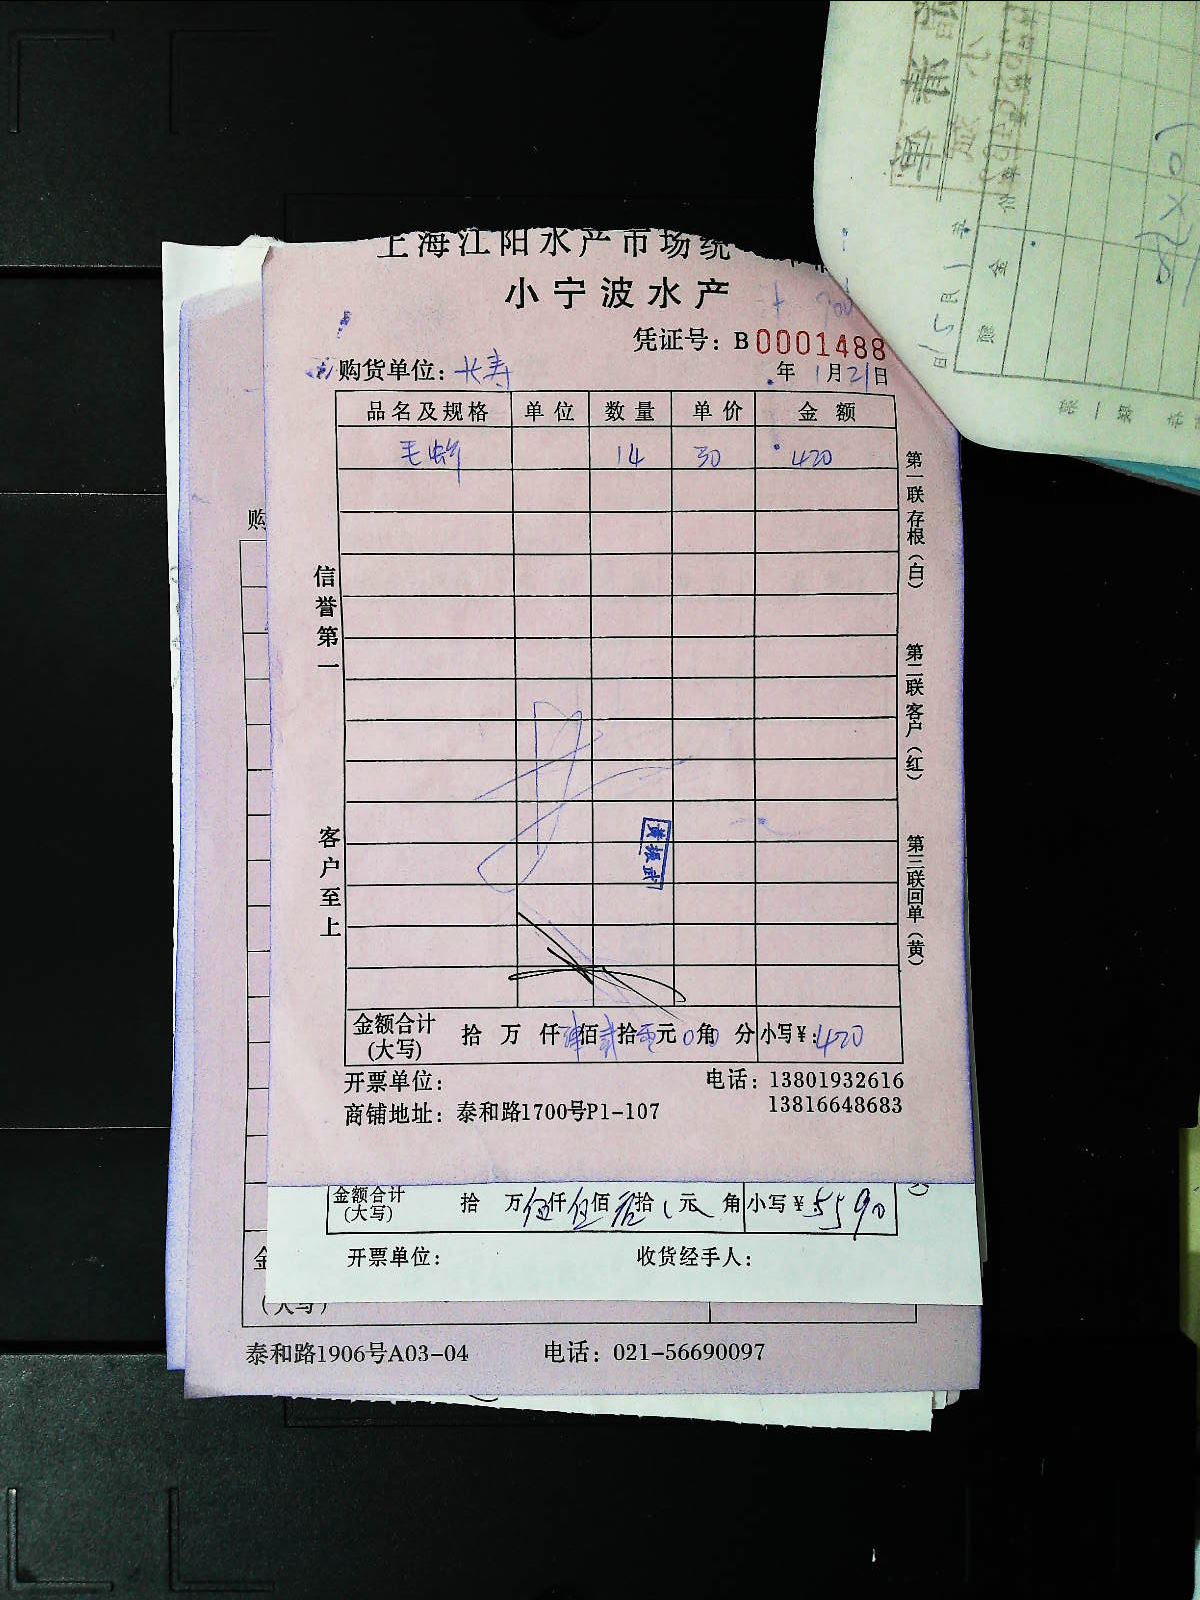 上海江阳水产市场统
小宁波水产
凭证号：B0001488
购货单位：长寿
年 1月21日
品名及规格 单位 数量 单价 金额
毛蚶 14 30 420
信誉第一
客户至上
第一联存根（白）
第二联客户（红）
第三联回单（黄）
黄振武
金额合计（大写） 拾 万 仟肆佰贰拾零元0角0分 小写￥：420
开票单位：
电话：13801932616
13816648683
商铺地址：泰和路1700号P1-107
金额合计（大写） 拾 万伍仟伍佰 拾 元 角 小写￥5590
开票单位： 收货经手人：
购
金
（大写）
泰和路1906号A03-04 电话：021-56690097